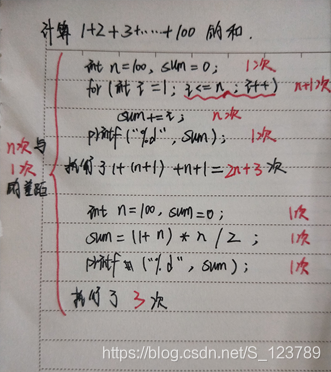 计算 1+2+3+……+100 的和.
int n=100, sum=0; 1次
for (int i=1; i<=n; i++) n+1次
sum+=i; n次
printf("%d", sum); 1次
执行了 1+(n+1)+n+1=2n+3 次
n次与
1次
的差距
int n=100, sum=0; 1次
sum=(1+n)*n/2; 1次
printf("%d", sum); 1次
执行了 3 次
https://blog.csdn.net/S_123789